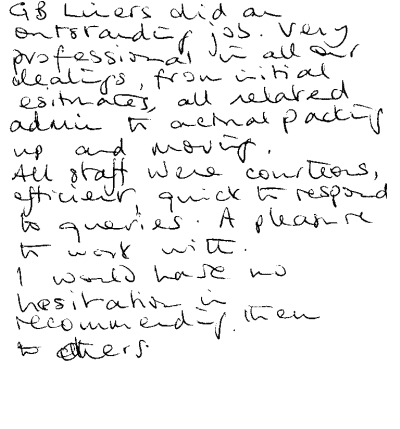 GB Liners did an
outstanding job. Very
professional in all our
dealings, from initial
esitmates, all related
admin to actual packing
up and moving.
All staff were courteous,
efficient, quick to respond
to queries. A pleasure
to work with.
I would have no
hesitation in
recommending them
to others.